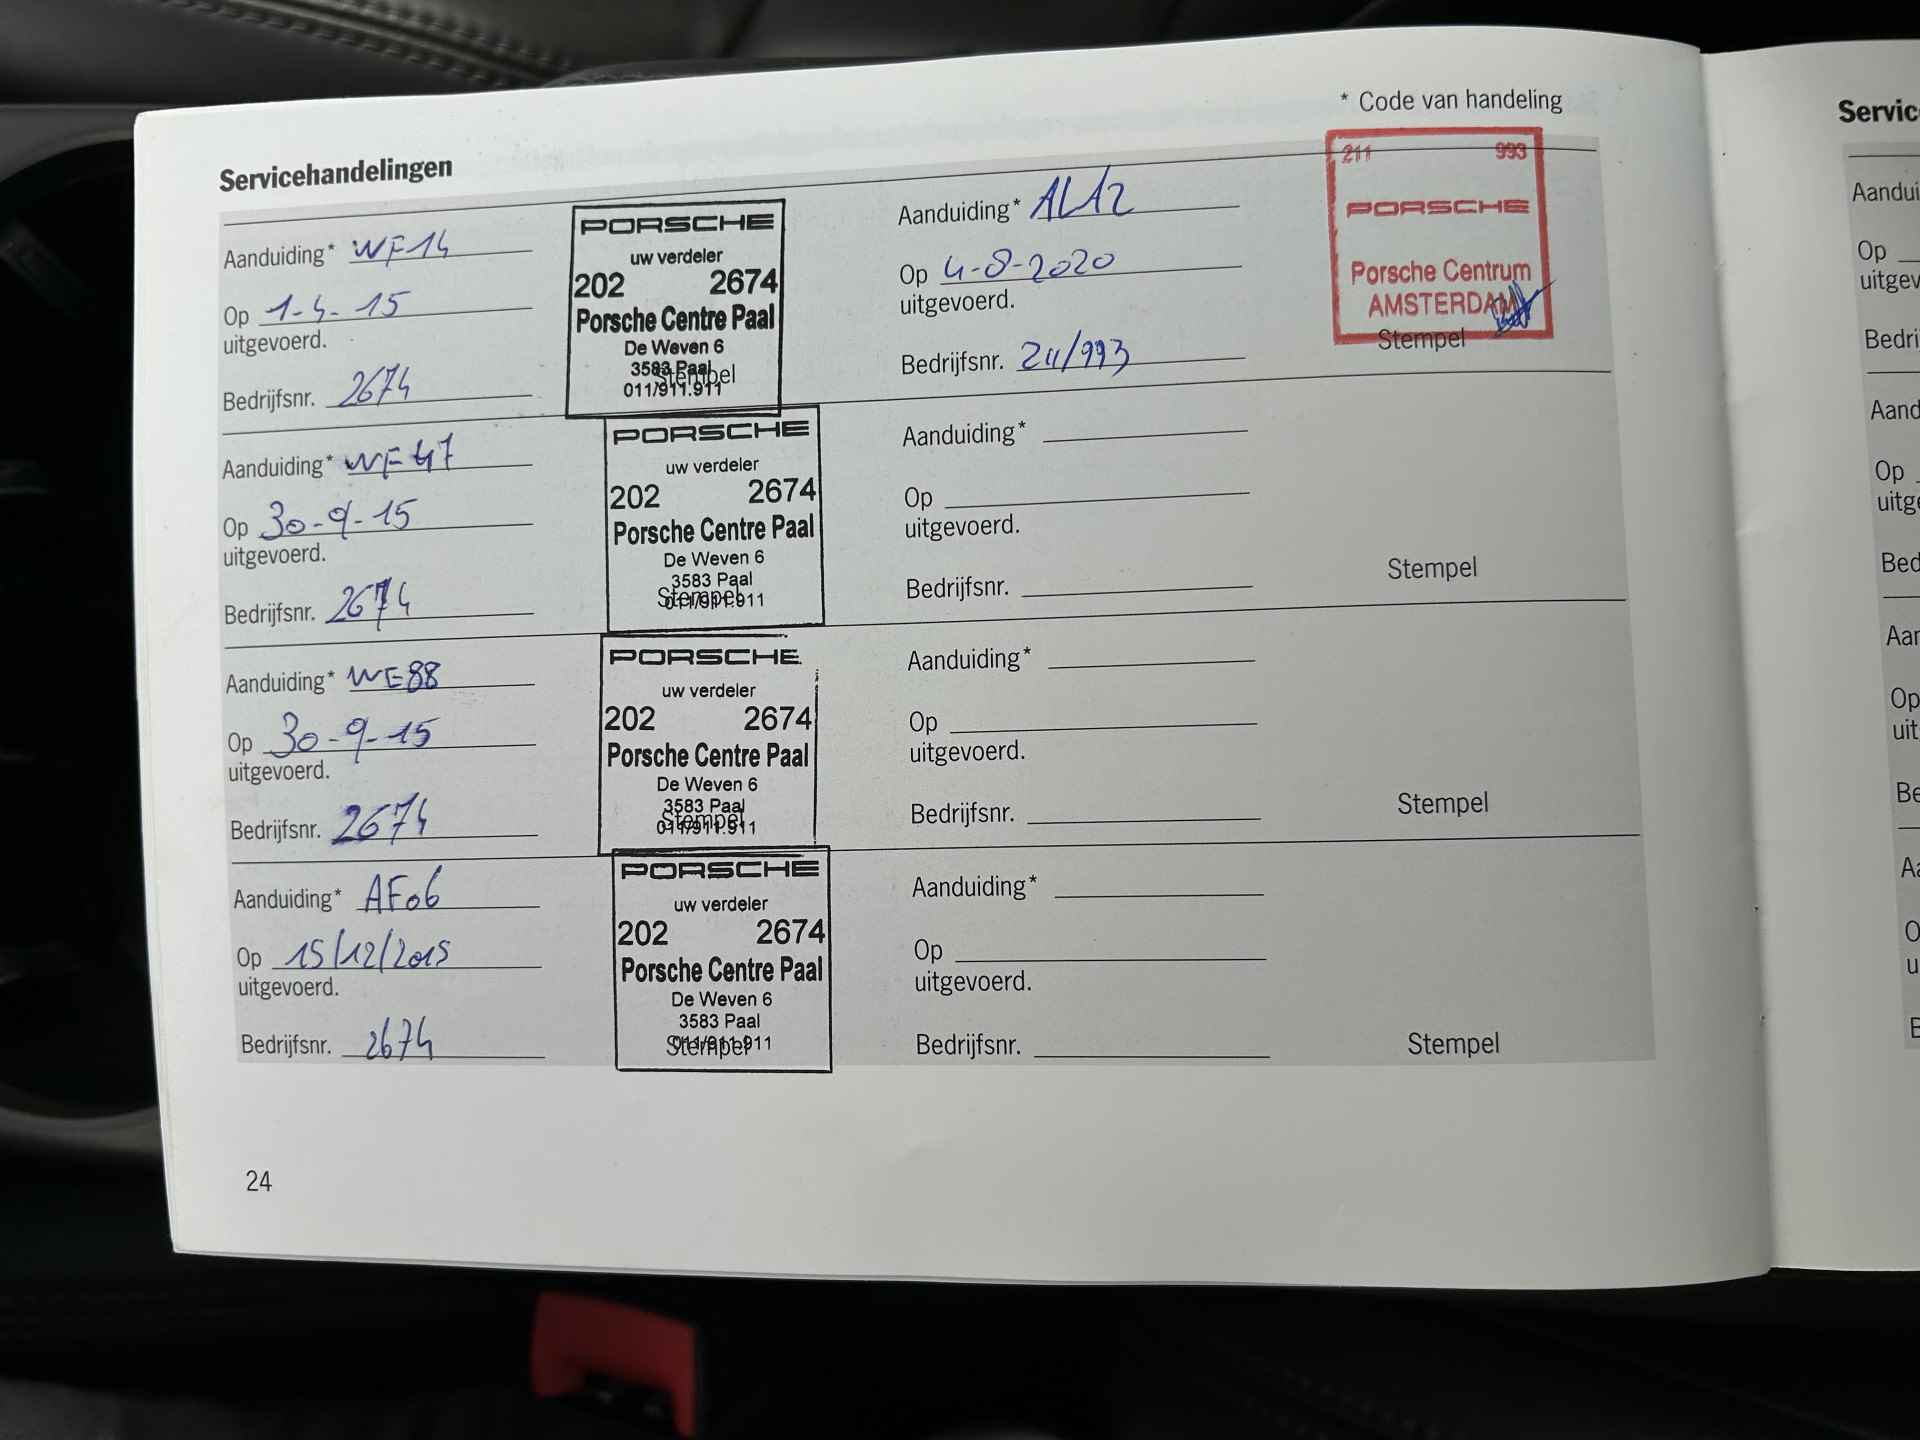 * Code van handeling
Servicehandelingen
Aanduiding* WF14
Op 1-4-15
uitgevoerd.
Bedrijfsnr. 2674
PORSCHE
uw verdeler
202 2674
Porsche Centre Paal
De Weven 6
3583 Paal
Stempel
011/911.911
Aanduiding* WF47
Op 30-9-15
uitgevoerd.
Bedrijfsnr. 2674
PORSCHE
uw verdeler
202 2674
Porsche Centre Paal
De Weven 6
3583 Paal
Stempel
011/911.911
Aanduiding* WE88
Op 30-9-15
uitgevoerd.
Bedrijfsnr. 2674
PORSCHE
uw verdeler
202 2674
Porsche Centre Paal
De Weven 6
3583 Paal
Stempel
011/911.911
Aanduiding* AF06
Op 15/12/2015
uitgevoerd.
Bedrijfsnr. 2674
PORSCHE
uw verdeler
202 2674
Porsche Centre Paal
De Weven 6
3583 Paal
Stempel
011/911.911
Aanduiding* ALA2
Op 4-8-2020
uitgevoerd.
Bedrijfsnr. 211/993
211 993
PORSCHE
Porsche Centrum
AMSTERDAM
Stempel
Aanduiding*
Op
uitgevoerd.
Bedrijfsnr.
Stempel
Aanduiding*
Op
uitgevoerd.
Bedrijfsnr.
Stempel
Aanduiding*
Op
uitgevoerd.
Bedrijfsnr.
Stempel
24
Servic
Aandui
Op
uitgev
Bedri
Aand
Op
uitge
Bed
Aar
Op
uit
Be
Aa
O
u
B